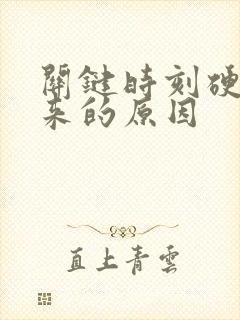 關鍵時刻硬
来的原因
直上青雲